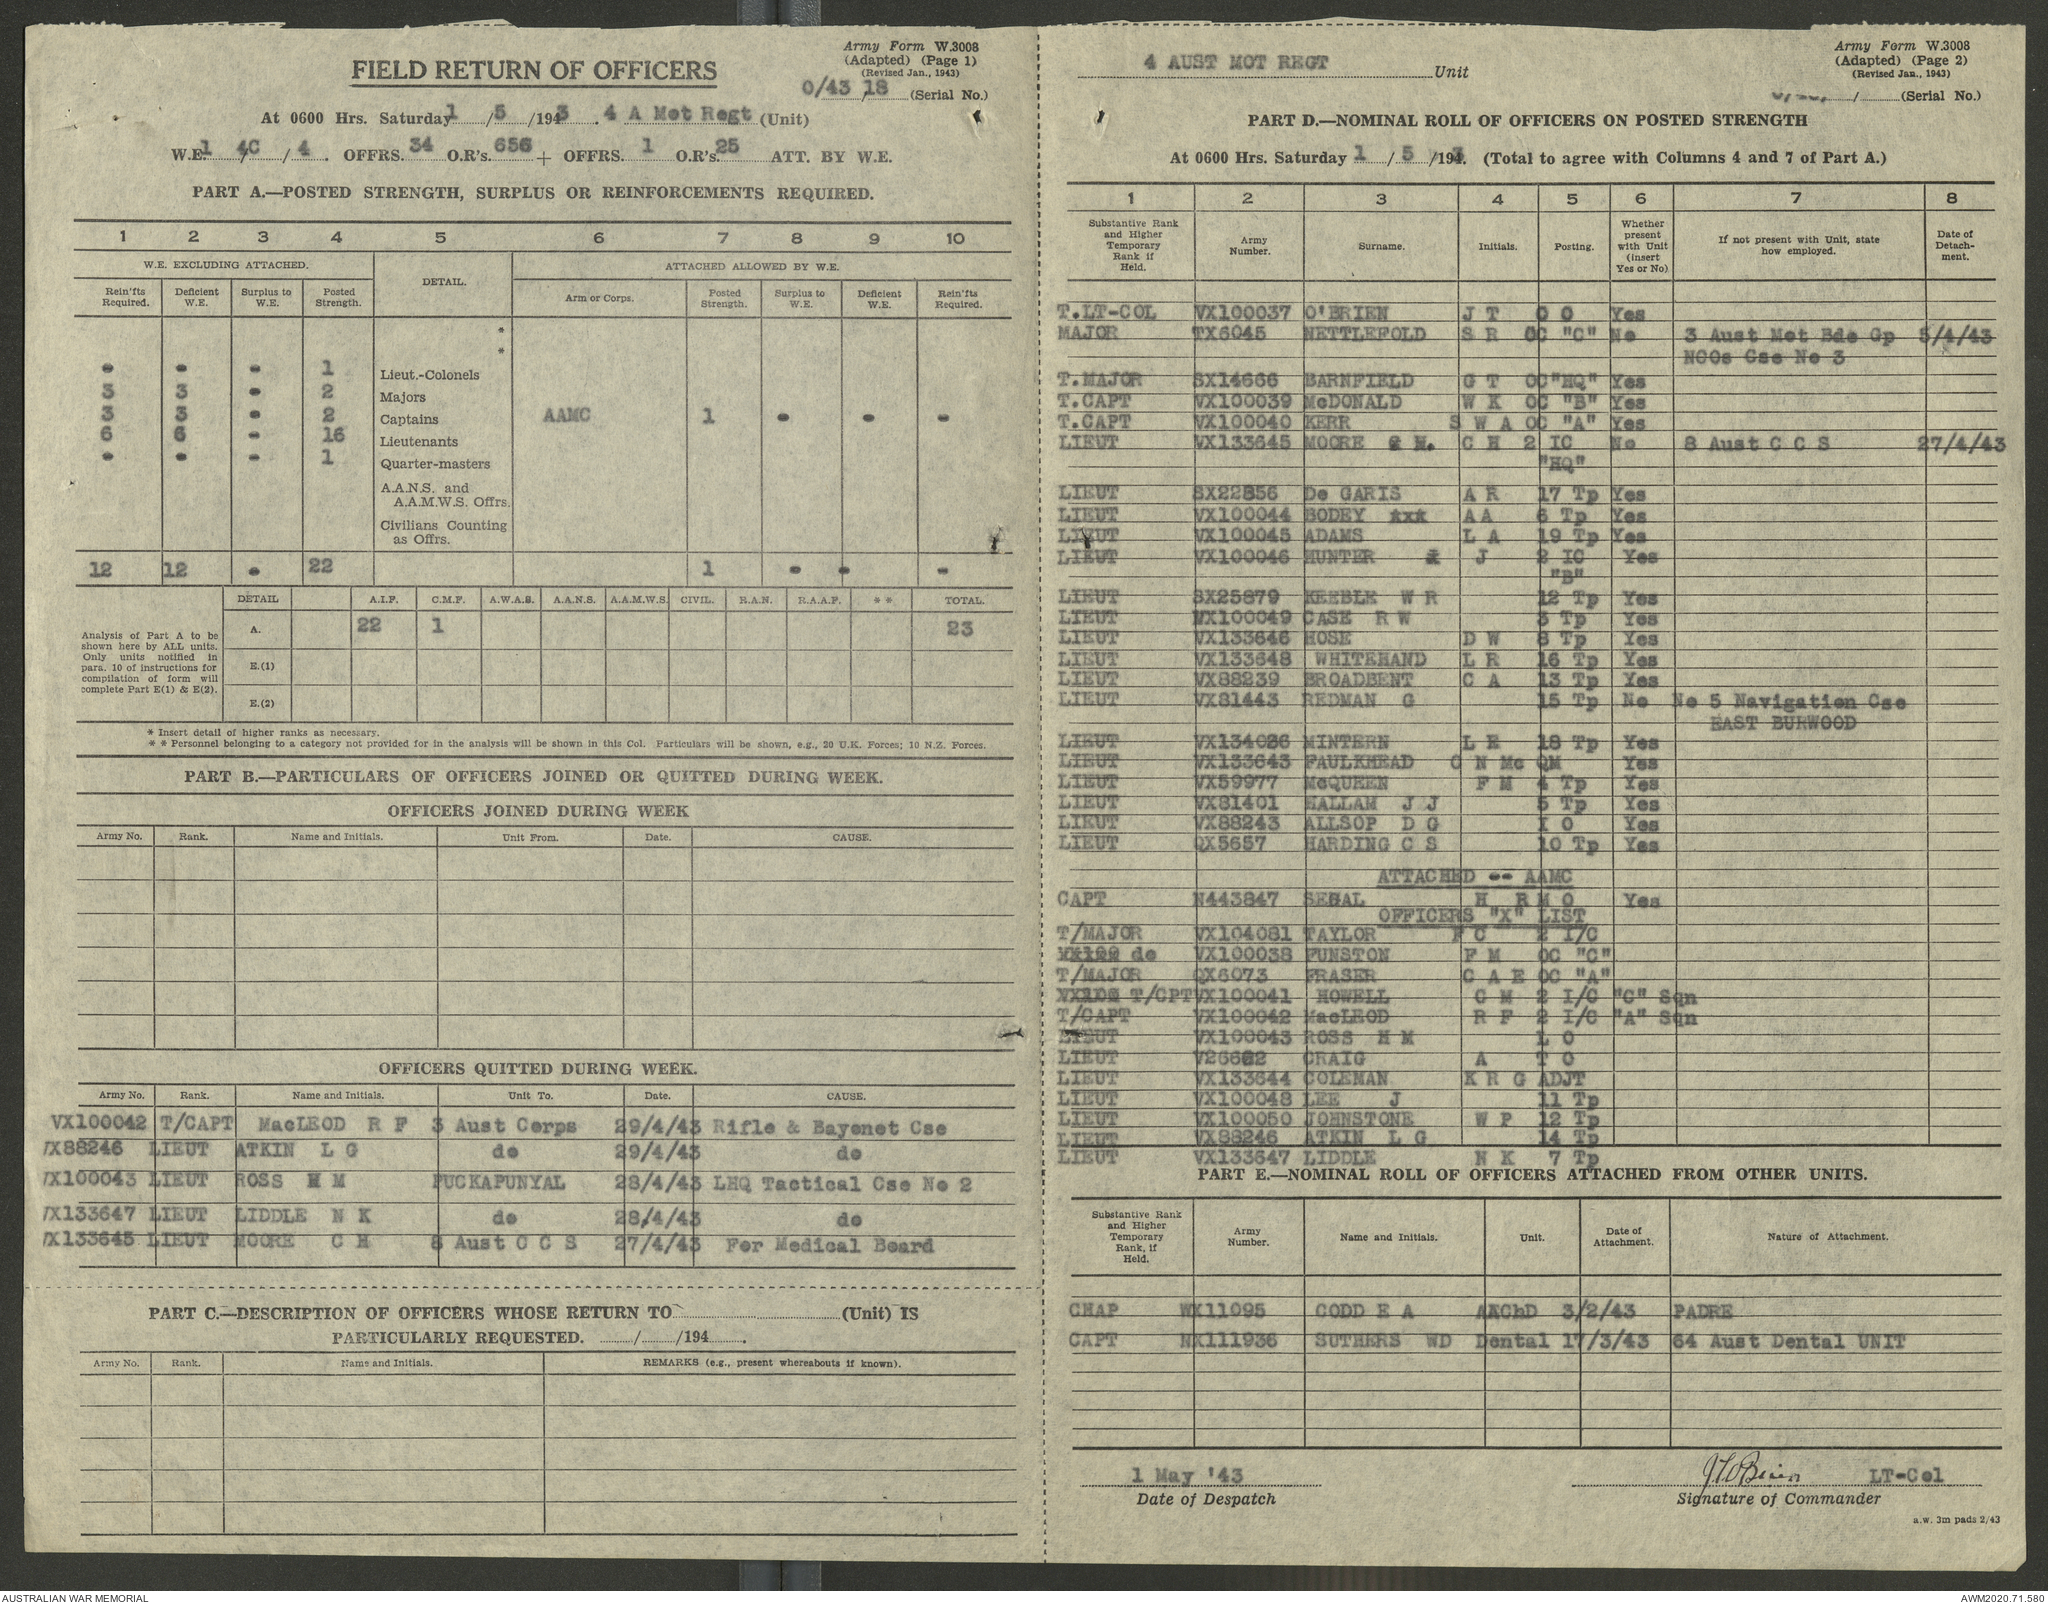 Army Form W.3008
(Adapted) (Page 1)
(Revised Jan., 1943)
FIELD RETURN OF OFFICERS
0/43/18 (Serial No.)
At 0600 Hrs. Saturday 1/5/1943. 4 A Mot Regt (Unit)
W.E. 1/4C/4. OFFRS. 34 O.R's. 656 + OFFRS. 1 O.R's. 25 ATT. BY W.E.
PART A.—POSTED STRENGTH, SURPLUS OR REINFORCEMENTS REQUIRED.
1 2 3 4 5 6 7 8 9 10
W.E. EXCLUDING ATTACHED. DETAIL. ATTACHED ALLOWED BY W.E.
Rein'fts Required. Deficient W.E. Surplus to W.E. Posted Strength. Arm or Corps. Posted Strength. Surplus to W.E. Deficient W.E. Rein'fts Required.
*
*
- - - 1 Lieut.-Colonels
3 3 - 2 Majors
3 3 - 2 Captains AAMC 1 - - -
6 6 - 16 Lieutenants
- - - 1 Quarter-masters
A.A.N.S. and
A.A.M.W.S. Offrs.
Civilians Counting
as Offrs.
12 12 - 22 1 - - -
DETAIL A.I.F. C.M.F. A.W.A.S. A.A.N.S. A.A.M.W.S. CIVIL. R.A.N. R.A.A.F. * * TOTAL.
Analysis of Part A to be
shown here by ALL units.
Only units notified in
para. 10 of instructions for
compilation of form will
complete Part E(1) & E(2).
A. 22 1 23
E.(1)
E.(2)
* Insert detail of higher ranks as necessary.
* * Personnel belonging to a category not provided for in the analysis will be shown in this Col. Particulars will be shown, e.g., 20 U.K. Forces; 10 N.Z. Forces.
PART B.—PARTICULARS OF OFFICERS JOINED OR QUITTED DURING WEEK.
OFFICERS JOINED DURING WEEK
Army No. Rank. Name and Initials. Unit From. Date. CAUSE.
OFFICERS QUITTED DURING WEEK.
Army No. Rank. Name and Initials. Unit To. Date. CAUSE.
VX100042 T/CAPT MacLEOD R F 3 Aust Corps 29/4/43 Rifle & Bayonet Cse
VX88246 LIEUT ATKIN L G do 29/4/43 do
VX100043 LIEUT ROSS H M PUCKAPUNYAL 28/4/43 LHQ Tactical Cse No 2
VX133647 LIEUT LIDDLE N K do 28/4/43 do
VX133645 LIEUT MOORE C H 8 Aust C C S 27/4/43 For Medical Board
PART C.—DESCRIPTION OF OFFICERS WHOSE RETURN TO (Unit) IS
PARTICULARLY REQUESTED. / /194 .
Army No. Rank. Name and Initials. REMARKS (e.g., present whereabouts if known).
Army Form W.3008
(Adapted) (Page 2)
(Revised Jan., 1943)
4 AUST MOT REGT Unit
/ (Serial No.)
PART D.—NOMINAL ROLL OF OFFICERS ON POSTED STRENGTH
At 0600 Hrs. Saturday 1/5/1943. (Total to agree with Columns 4 and 7 of Part A.)
1 2 3 4 5 6 7 8
Substantive Rank and Higher Temporary Rank if Held. Army Number. Surname. Initials. Posting. Whether present with Unit (insert Yes or No) If not present with Unit, state how employed. Date of Detachment.
T.LT-COL VX100037 O'BRIEN J T C O Yes
MAJOR TX6045 NETTLEFOLD S R OC "C" No 3 Aust Mot Bde Gp 5/4/43
NCOs Cse No 3
T.MAJOR SX14666 BARNFIELD G T OC "HQ" Yes
T.CAPT VX100039 McDONALD W K OC "B" Yes
T.CAPT VX100040 KERR S W A OC "A" Yes
LIEUT VX133645 MOORE C H 2 IC No 8 Aust C C S 27/4/43
"HQ"
LIEUT SX22856 De GARIS A R 17 Tp Yes
LIEUT VX100044 BODEY AA 6 Tp Yes
LIEUT VX100045 ADAMS L A 19 Tp Yes
LIEUT VX100046 HUNTER J 2 IC Yes
"B"
LIEUT SX25879 KEEBLE W R 12 Tp Yes
LIEUT VX100049 CASE R W 3 Tp Yes
LIEUT VX133646 HOSE D W 8 Tp Yes
LIEUT VX133648 WHITEHAND L R 16 Tp Yes
LIEUT VX88239 BROADBENT C A 13 Tp Yes
LIEUT VX81443 REDMAN G 15 Tp No No 5 Navigation Cse
EAST BURWOOD
LIEUT VX134026 MINTERN L E 18 Tp Yes
LIEUT VX133643 FAULKHEAD C N Mc QM Yes
LIEUT VX59977 McQUEEN F M 4 Tp Yes
LIEUT VX81401 HALLAM J J 5 Tp Yes
LIEUT VX88243 ALLSOP D G I O Yes
LIEUT QX5657 HARDING C S 10 Tp Yes
ATTACHED -- AAMC
CAPT N443847 SEGAL H R M O Yes
OFFICERS "X" LIST
T/MAJOR VX104081 TAYLOR F C 2 I/C
do VX100038 FUNSTON F M OC "C"
T/MAJOR QX6073 FRASER C A E OC "A"
T/CPT VX100041 HOWELL C M 2 I/C "C" Sqn
T/CAPT VX100042 MacLEOD R F 2 I/C "A" Sqn
LIEUT VX100043 ROSS H M L O
LIEUT V26662 CRAIG A T O
LIEUT VX133644 COLEMAN K R G ADJT
LIEUT VX100048 LEE J 11 Tp
LIEUT VX100050 JOHNSTONE W P 12 Tp
LIEUT VX88246 ATKIN L G 14 Tp
LIEUT VX133647 LIDDLE N K 7 Tp
PART E.—NOMINAL ROLL OF OFFICERS ATTACHED FROM OTHER UNITS.
Substantive Rank and Higher Temporary Rank, if Held. Army Number. Name and Initials. Unit. Date of Attachment. Nature of Attachment.
CHAP WX11095 CODD E A AAChD 3/2/43 PADRE
CAPT NX111936 SUTHERS WD Dental 17/3/43 64 Aust Dental UNIT
1 May '43 J T O'Brien LT-Col
Date of Despatch Signature of Commander
a.w. 3m pads 2/43
AUSTRALIAN WAR MEMORIAL AWM2020.71.580